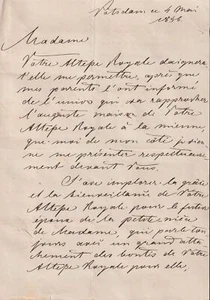 Potsdam ce 4 Mai
1836
Madame
Votre Altesse Royale daignera
t'elle me permettre, après que
mes parents l'ont informé
de l'union qui va rapprocher
l'auguste maison de Votre
Altesse Royale à la mienne,
que moi de mon côté j'ose
me présenter respectueuse
ment devant Vous.
J'ose implorer la grâce
et la bienveillance de Votre
Altesse Royale pour le futur
époux de la petite nièce
de Madame, qui parle tou
jours avec un grand atta
chement des bontés de Votre
Altesse Royale pour elle,